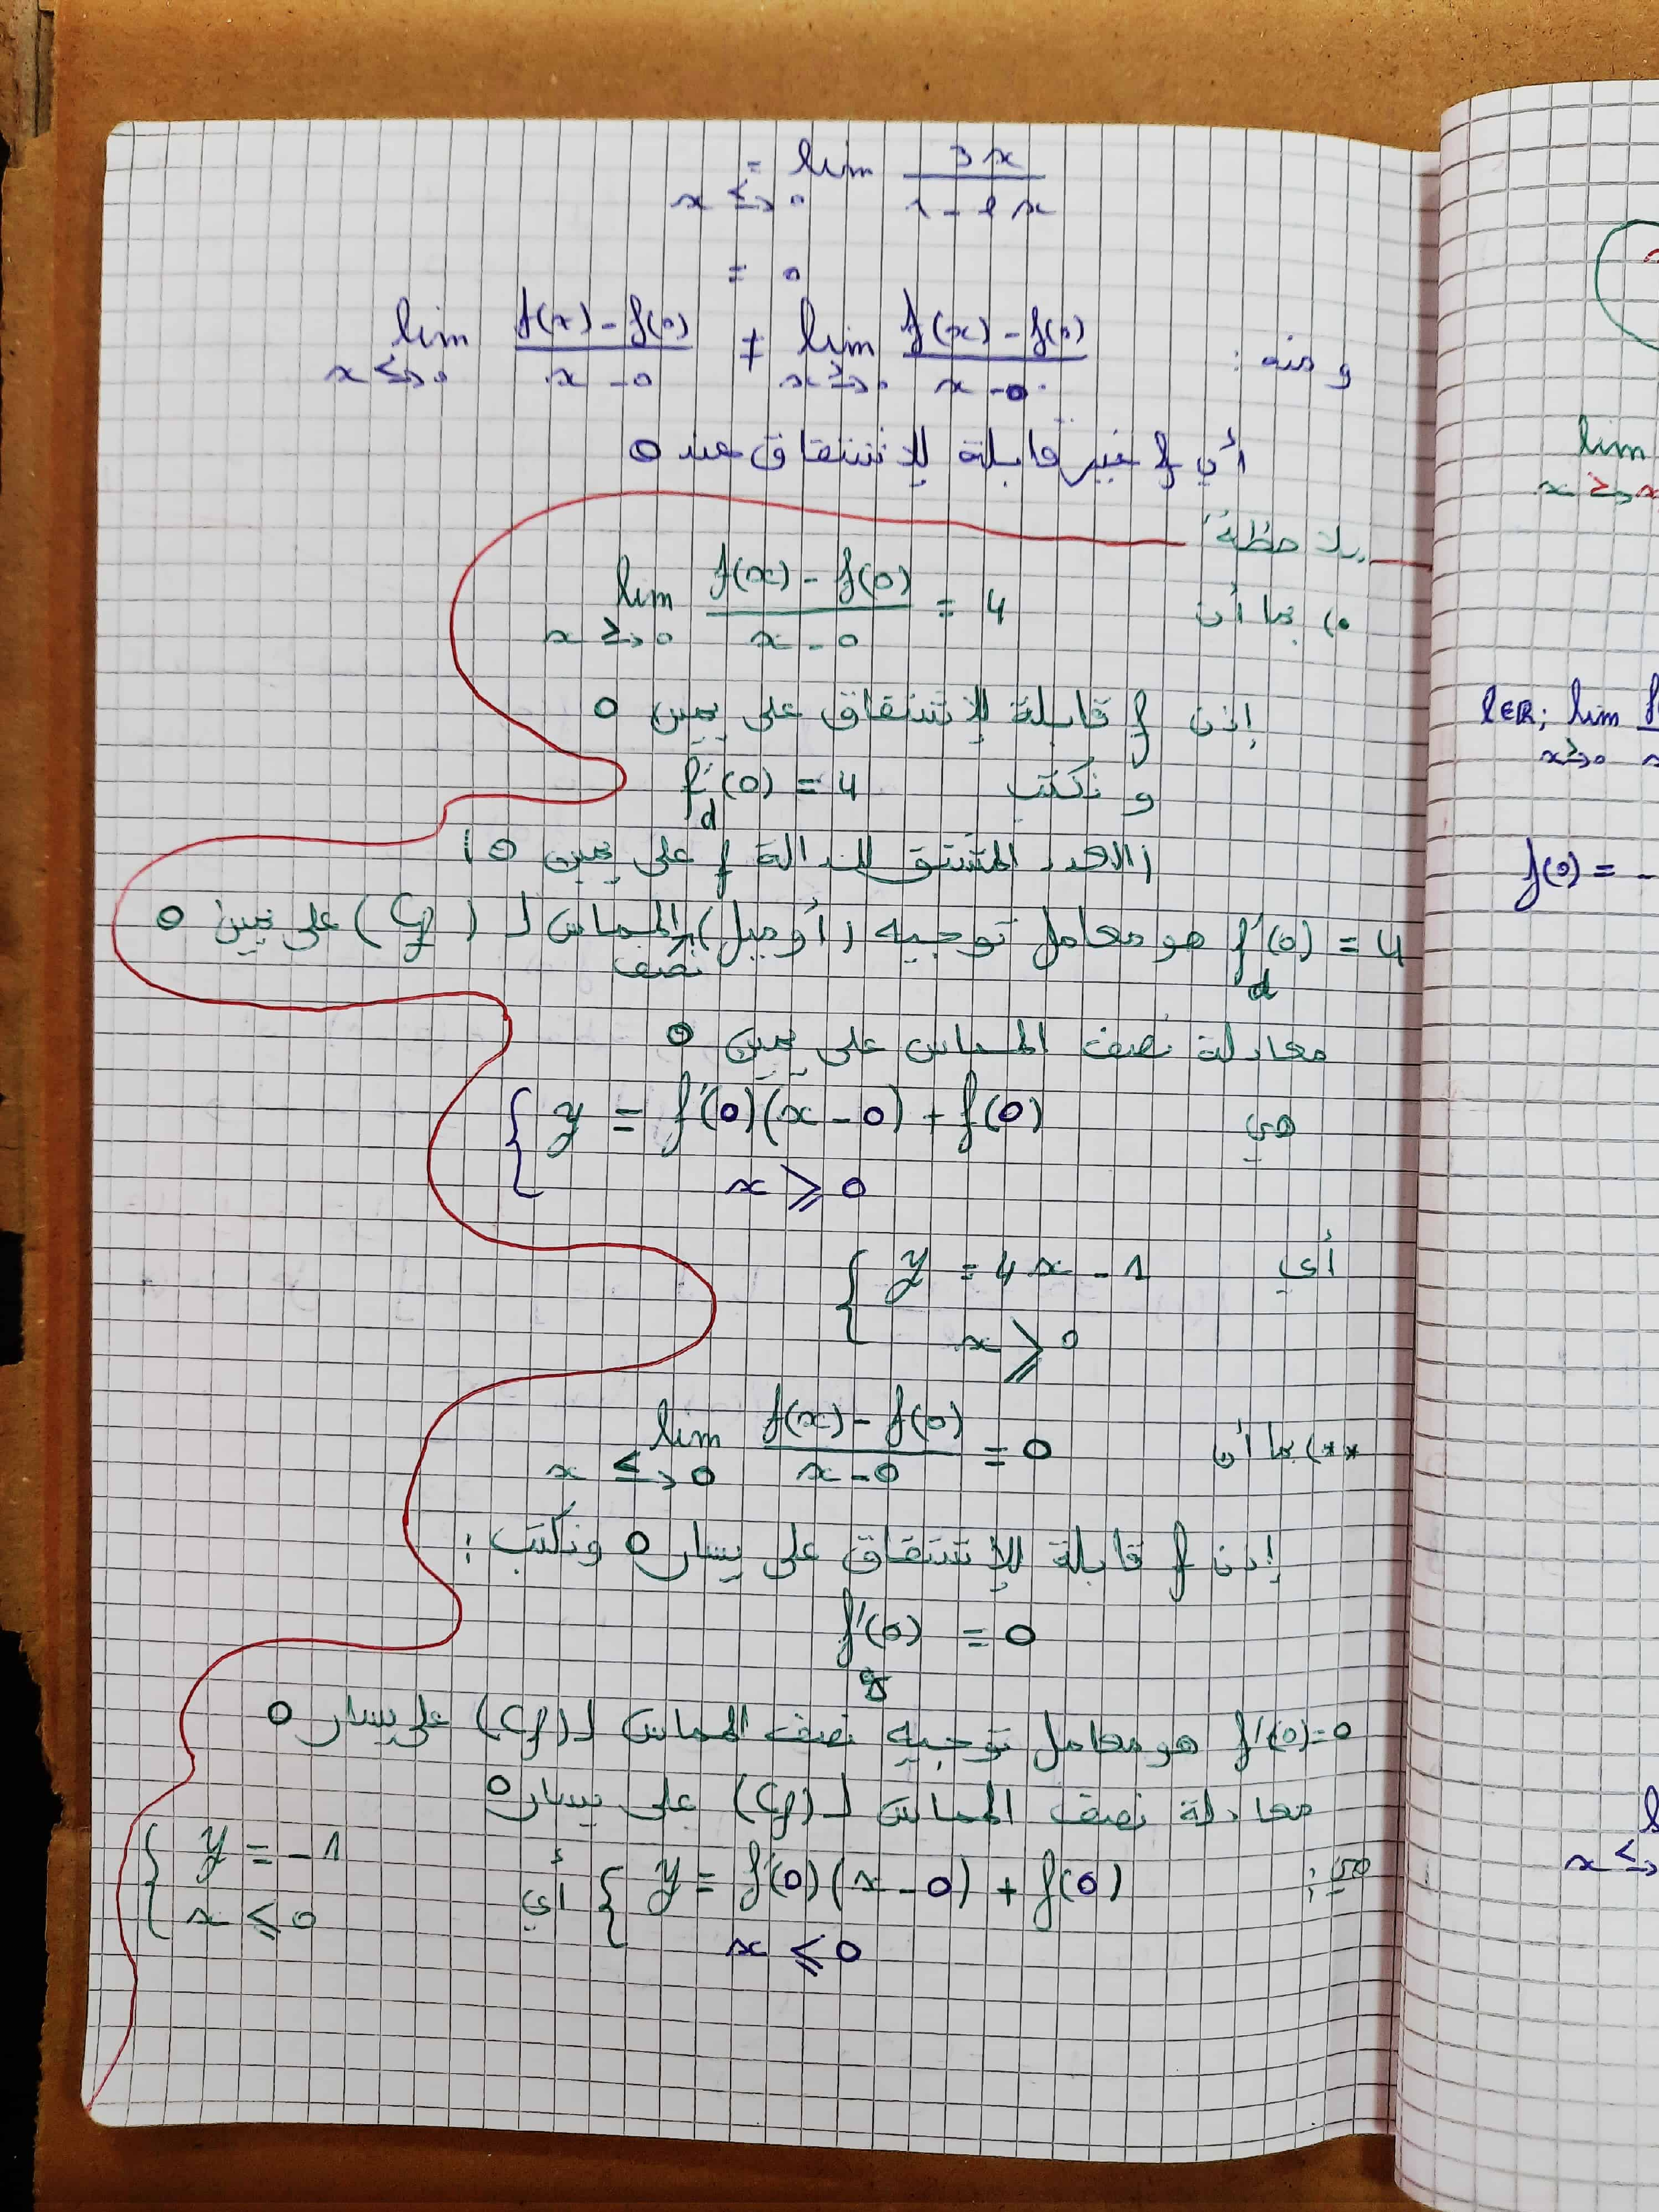 = lim 3x / 1 - 2x
x ≤→ 0
= 0
ومنه : lim f(x) - f(0) / x - 0 ≠ lim f(x) - f(0) / x - 0
x ≤→ 0 x ≥→ 0
أي f غير قابلة للإشتقاق عند 0
ملاحظة
•) بما أن lim f(x) - f(0) / x - 0 = 4
x ≥→ 0
إذن f قابلة للإشتقاق على يمين 0
و نكتب f'd(0) = 4
(العدد المشتق للدالة f على يمين 0)
f'd(0) = 4 هو معامل توجيه (أو ميل) نصف المماس لـ (Cf) على يمين 0
معادلة نصف المماس على يمين 0
هي { y = f'(0)(x - 0) + f(0)
x ⩾ 0
أي { y = 4x - 1
x ⩾ 0
**) بما أن lim f(x) - f(0) / x - 0 = 0
x ≤→ 0
إذن f قابلة للإشتقاق على يسار 0 ونكتب :
f'g(0) = 0
f'(0) = 0 هو معامل توجيه نصف المماس لـ (Cf) على يسار 0
معادلة نصف المماس لـ (Cf) على يسار 0
هي : { y = f'(0)(x - 0) + f(0) أي { y = -1
x ⩽ 0 x ⩽ 0
lim
x ≥→ x
l∈ℝ; lim
x ≥→ 0
f(0) = -
x ≤→